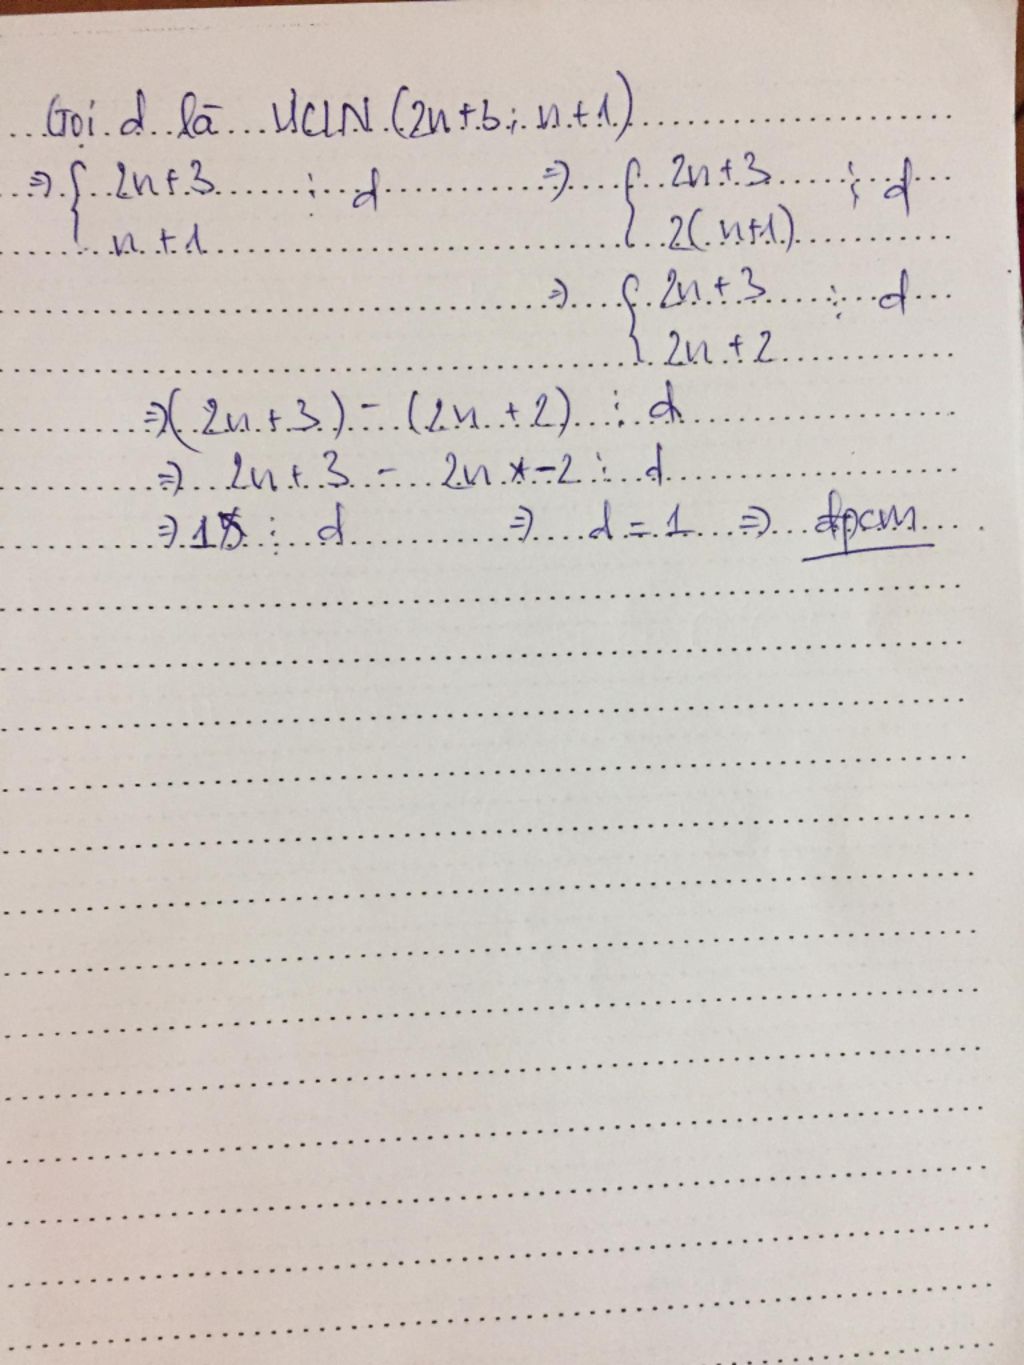 Gọi d là ƯCLN (2n+3; n+1)
=> { 2n+3 ⋮ d => { 2n+3 ⋮ d
n+1 2(n+1)
=> { 2n+3 ⋮ d
2n+2
=> (2n+3) - (2n+2) ⋮ d
=> 2n+3 - 2n - 2 ⋮ d
=> 1 ⋮ d => d = 1 => đpcm